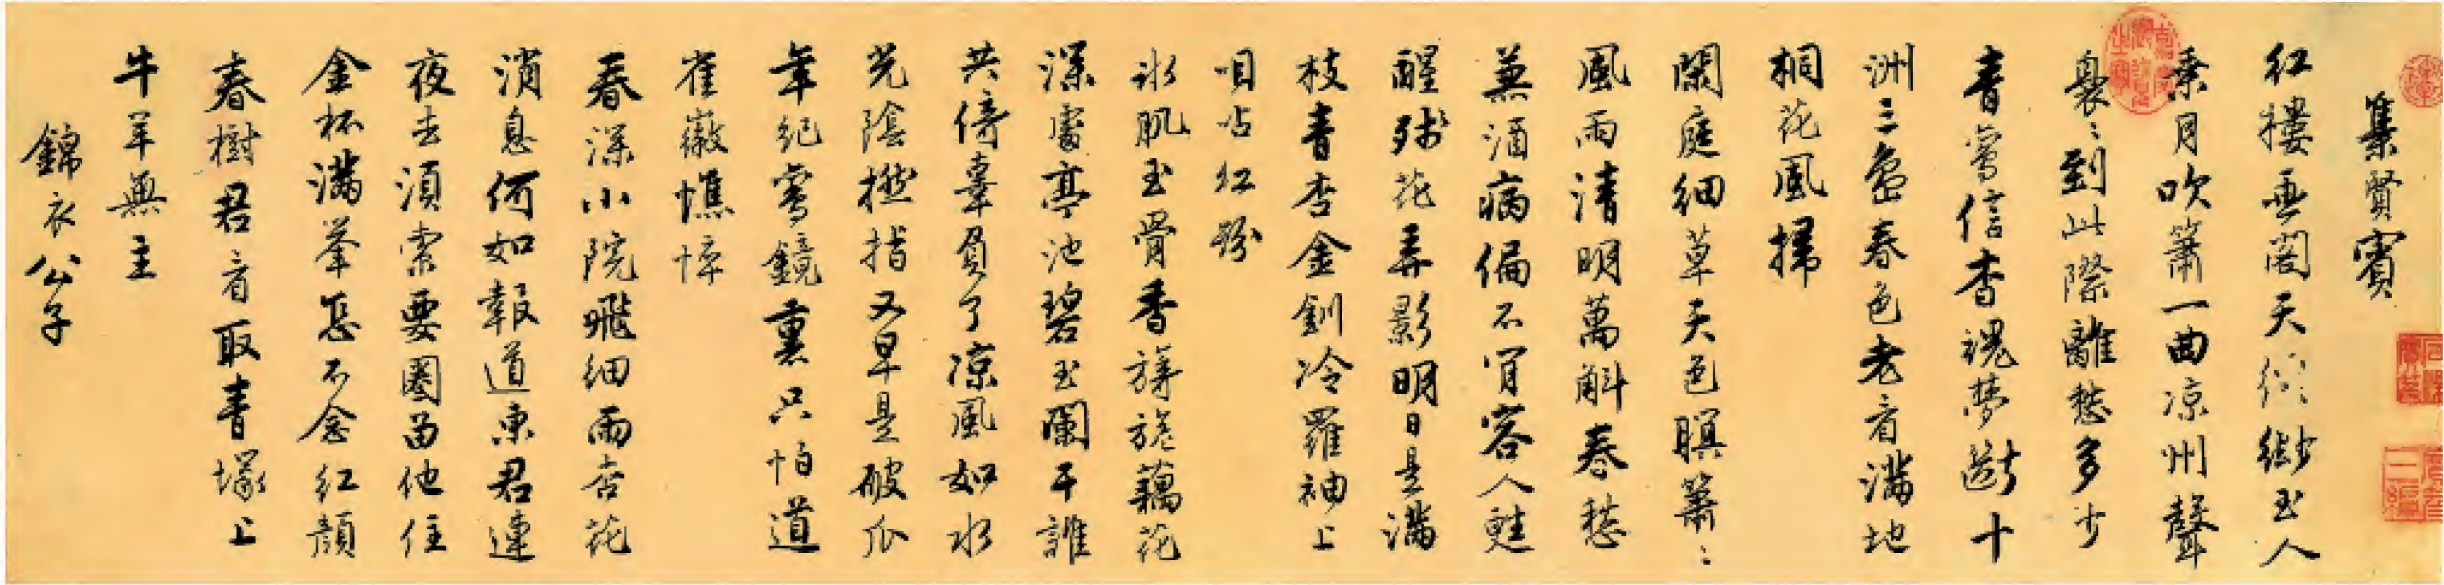 集賢賓
紅樓畫閣天縹緲玉人
乘月吹簫一曲涼州聲
裊〻到此際離愁多少
青鸞信杳魂夢斷十
洲三島春色老看滿地
桐花風掃
闌庭細草天色暝簫〻
風雨清明萬斛春愁
兼酒病偏不肯容人甦
醒殘花弄影明日是滿
枝青杏金釧冷羅袖上
沾紅粉
冰肌玉骨香旖旎藕花
深處亭池碧玉闌干誰
共倚辜負了涼風如水
光陰撚指又早是破瓜
年紀鸞鏡裏只怕道
崔徽憔悴
春深小院飛細雨杏花
消息何如報道東君連
夜去須索要圈留他住
金杯滿舉怎不念紅顏
春樹君看取青塚上
牛羊無主
錦衣公子